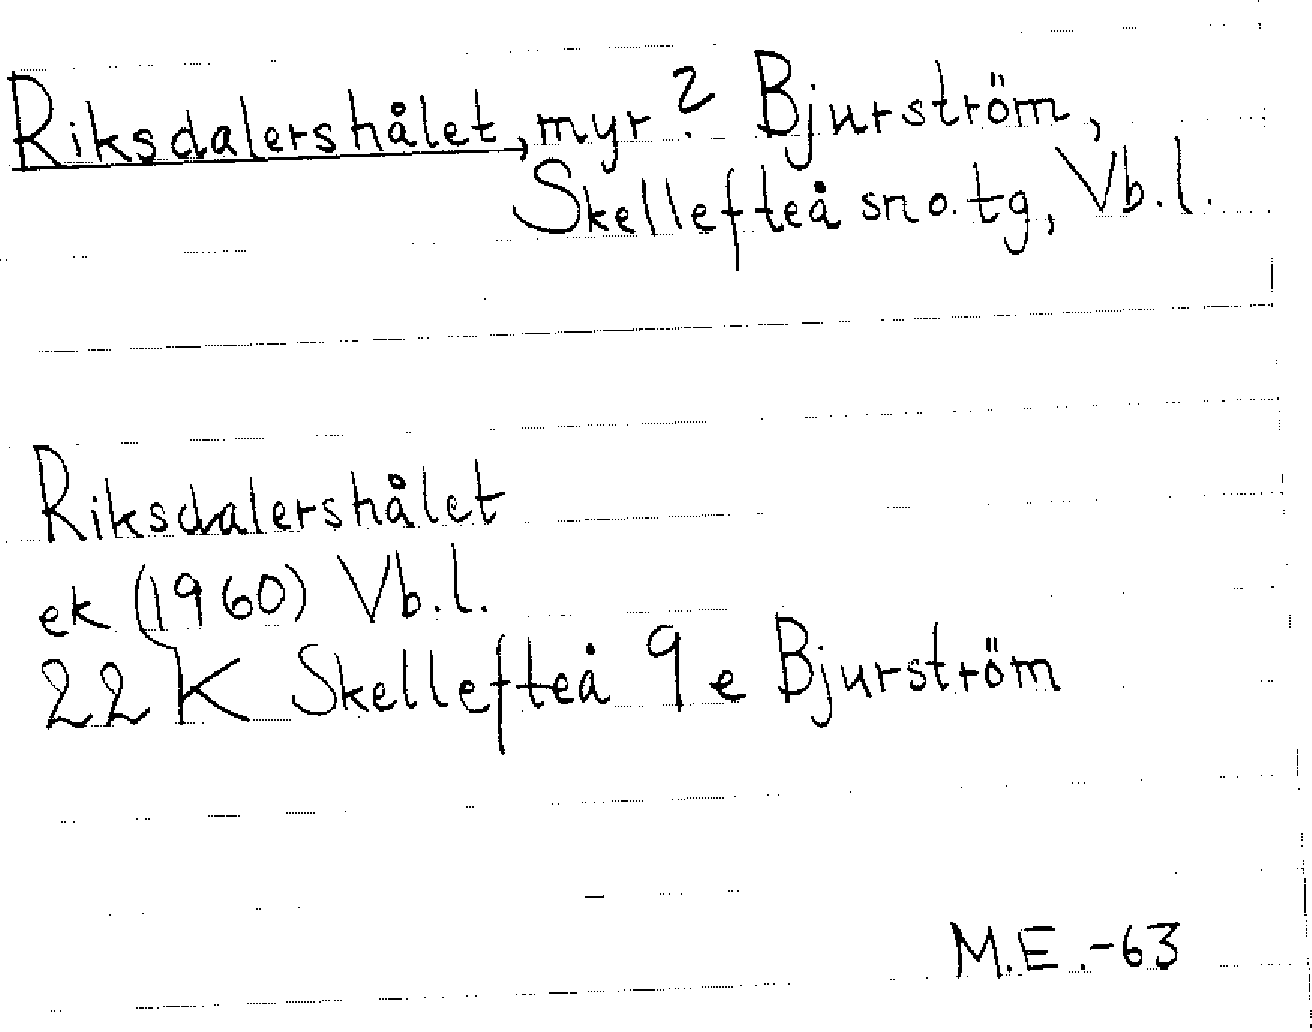 Riksdalershålet, myr? Bjurström,
Skellefteå sn o. tg, Vb. l.
Riksdalershålet
ek (1960) Vb. l.
22 K Skellefteå 9 e Bjurström
M.E.-63